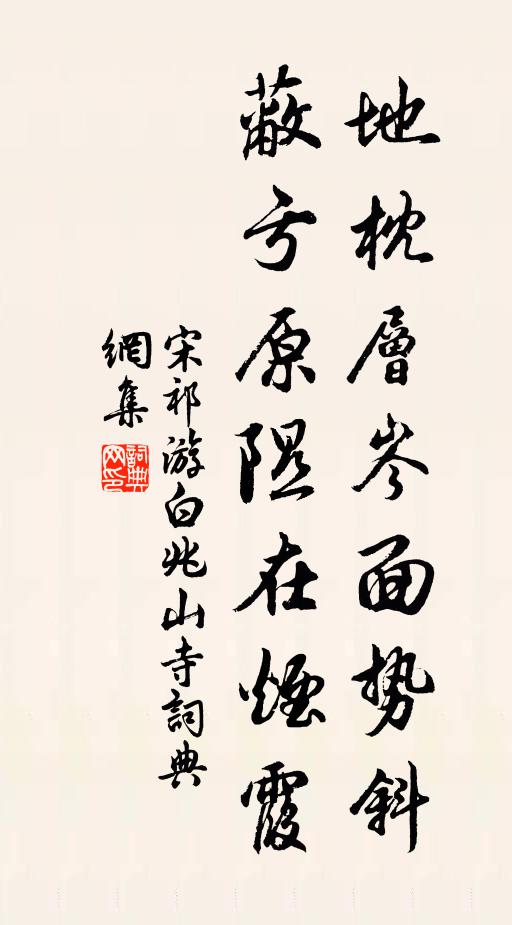 地枕層岑面势斜
蔽亏原隰在煙霞
宋祁游白兆山寺詞典
網集
詞典
网印